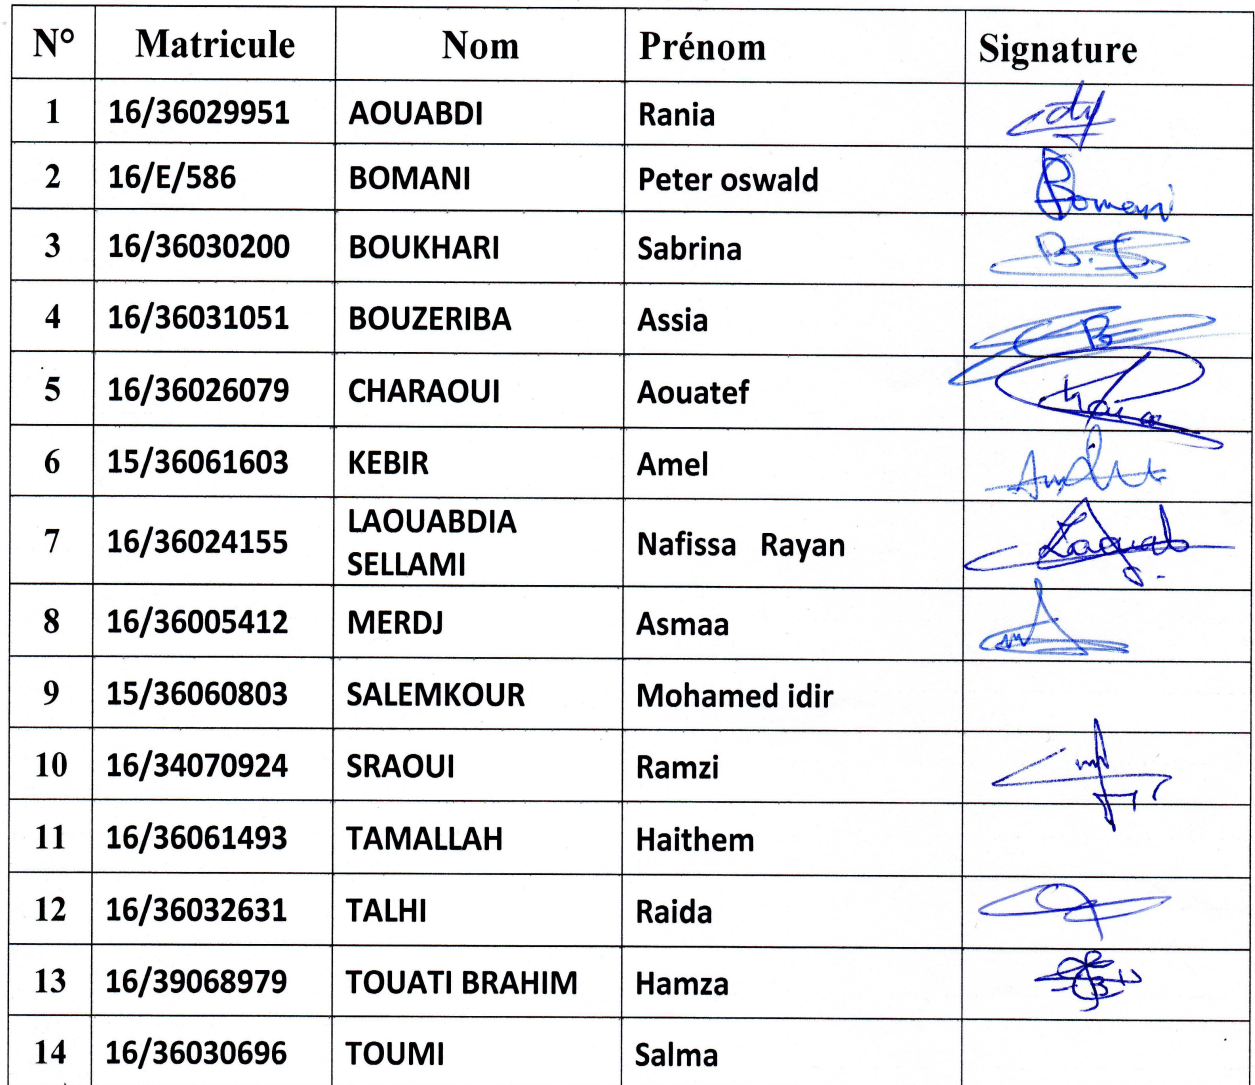 N° Matricule Nom Prénom Signature
1 16/36029951 AOUABDI Rania
2 16/E/586 BOMANI Peter oswald Bomani
3 16/36030200 BOUKHARI Sabrina B.S
4 16/36031051 BOUZERIBA Assia B
5 16/36026079 CHARAOUI Aouatef
6 15/36061603 KEBIR Amel
7 16/36024155 LAOUABDIA
SELLAMI Nafissa Rayan Laouab
8 16/36005412 MERDJ Asmaa
9 15/36060803 SALEMKOUR Mohamed idir
10 16/34070924 SRAOUI Ramzi
11 16/36061493 TAMALLAH Haithem
12 16/36032631 TALHI Raida
13 16/39068979 TOUATI BRAHIM Hamza
14 16/36030696 TOUMI Salma